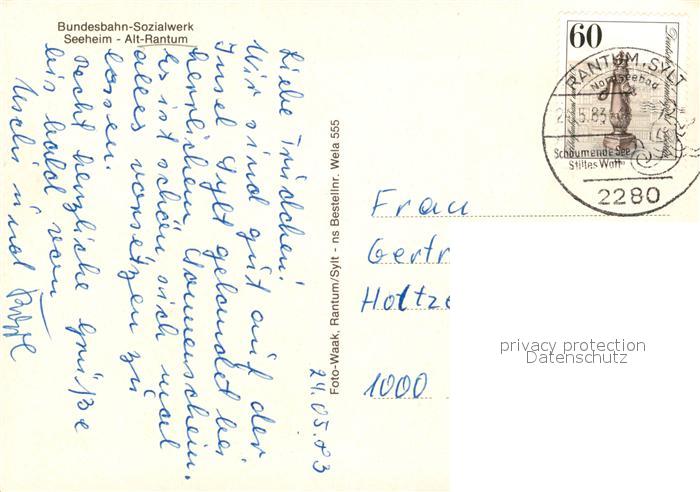 Bundesbahn-Sozialwerk
Seeheim - Alt-Rantum
24.05.83
Liebe Trudchen!
Wir sind gut auf der
Insel Sylt gelandet bei
herrlichem Sonnenschein.
Es ist schön, sich mal
alles vorsetzen zu
lassen.
Recht herzliche Grüße
bis bald von
Uschi und
Foto-Waak, Rantum/Sylt - ns Bestellnr. Wela 555
60
RANTUM, SYLT
Nordseebad
5.83
Schäumende See
Stilles Watt
2280
Frau
Gertr
Holtze
1000
privacy protection
Datenschutz